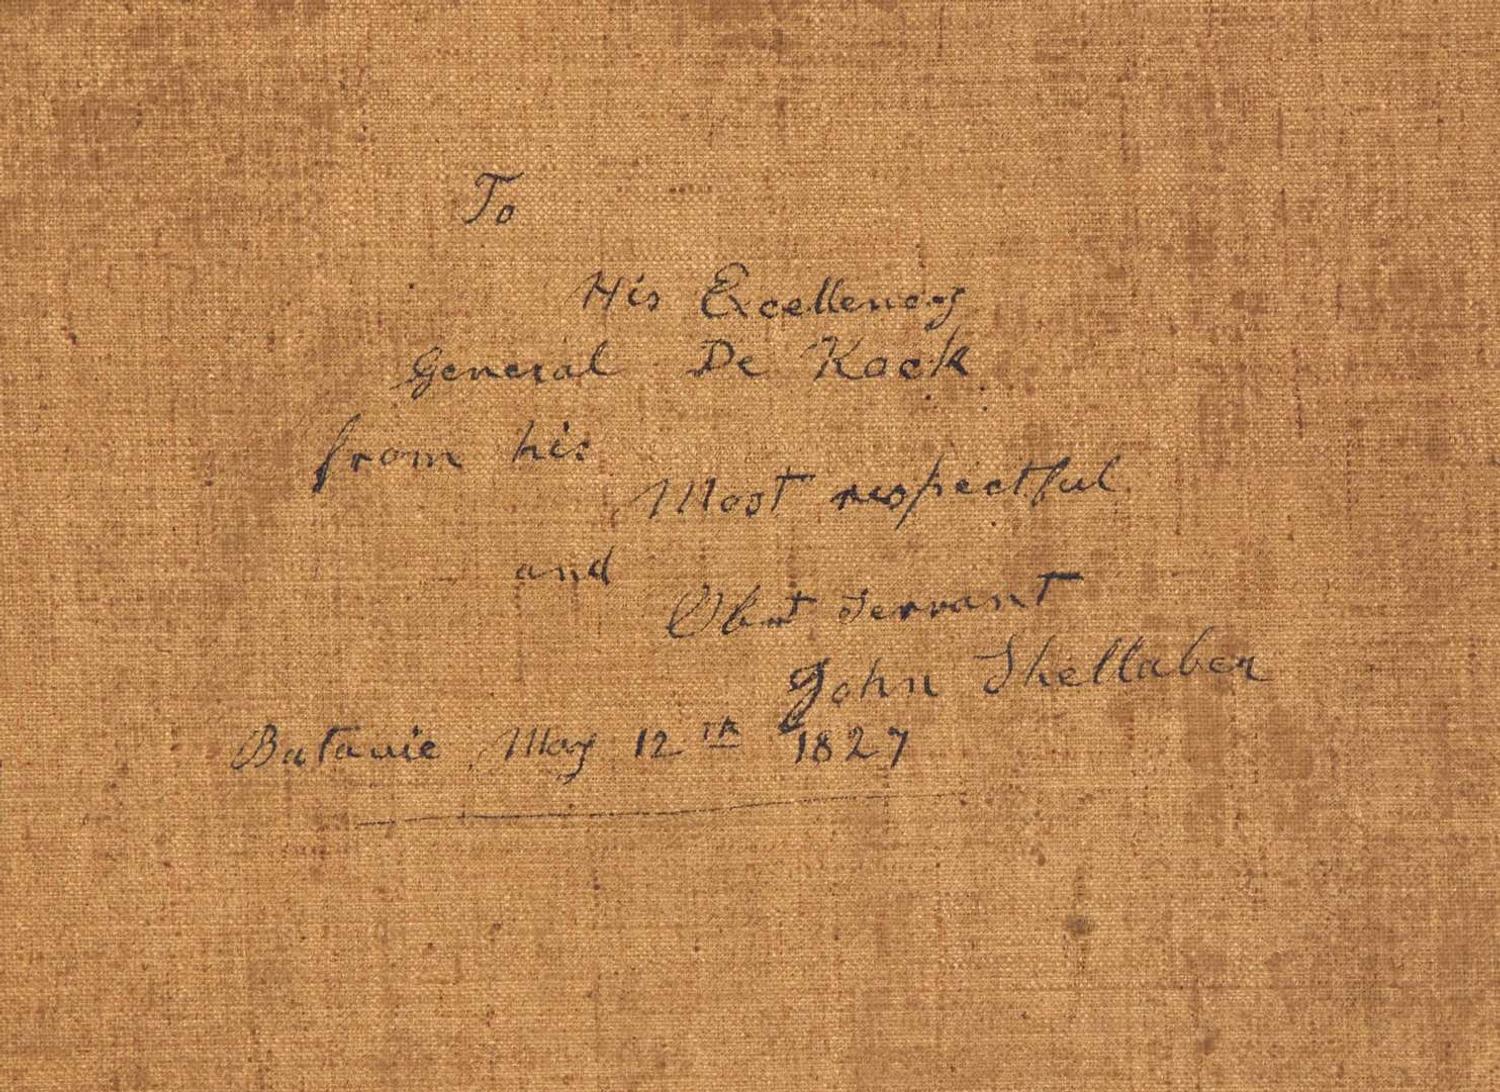 To
His Excellency
General De Kock
from his
Most respectful
and
Obnt servant
John Shellaber
Batavie May 12 TH 1827